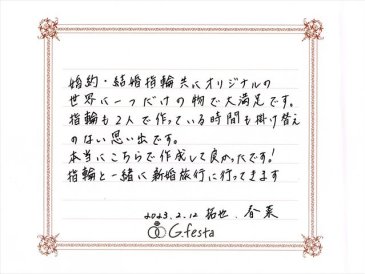 婚約・結婚指輪共にオリジナルの
世界に一つだけの物で大満足です。
指輪も2人で作っている時間も掛け替え
のない思い出です。
本当にこちらで作成して良かったです!
指輪と一緒に新婚旅行に行ってきます
2023.2.12 拓也. 春菜
G.festa